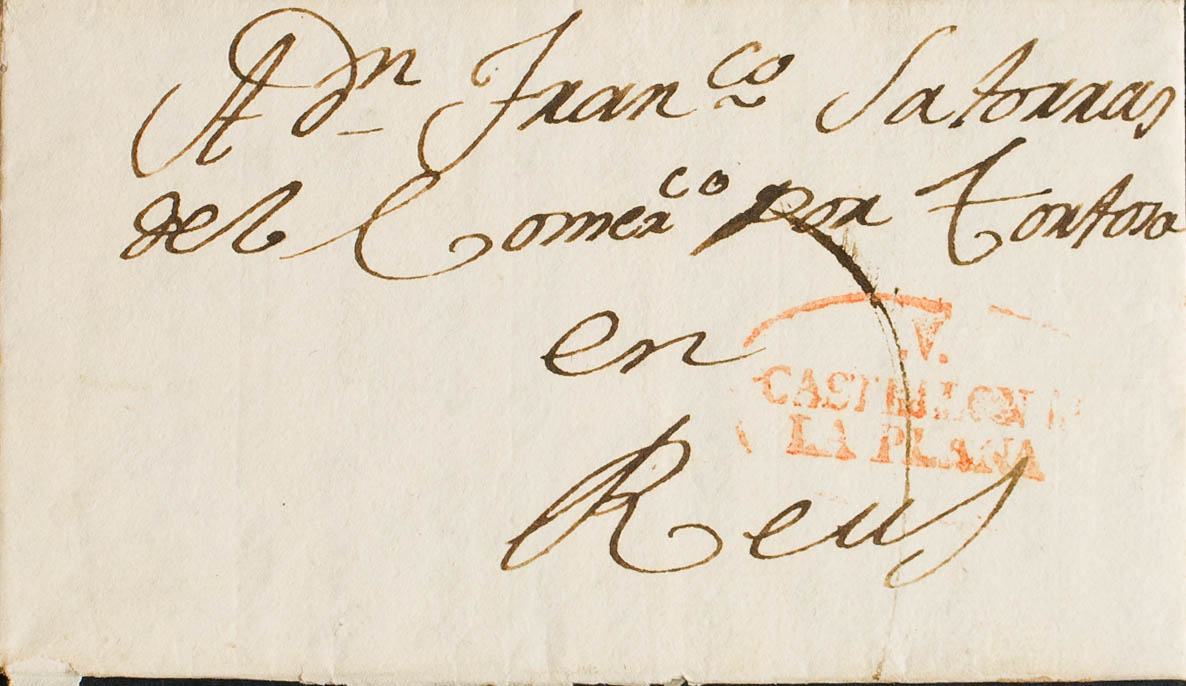 A Dn Franco Satorras
del Comerco por Tortosa
en
Reus
.V.
CASTELLON
LA PLANA